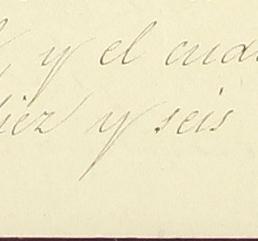 y el cuad
diez y seis